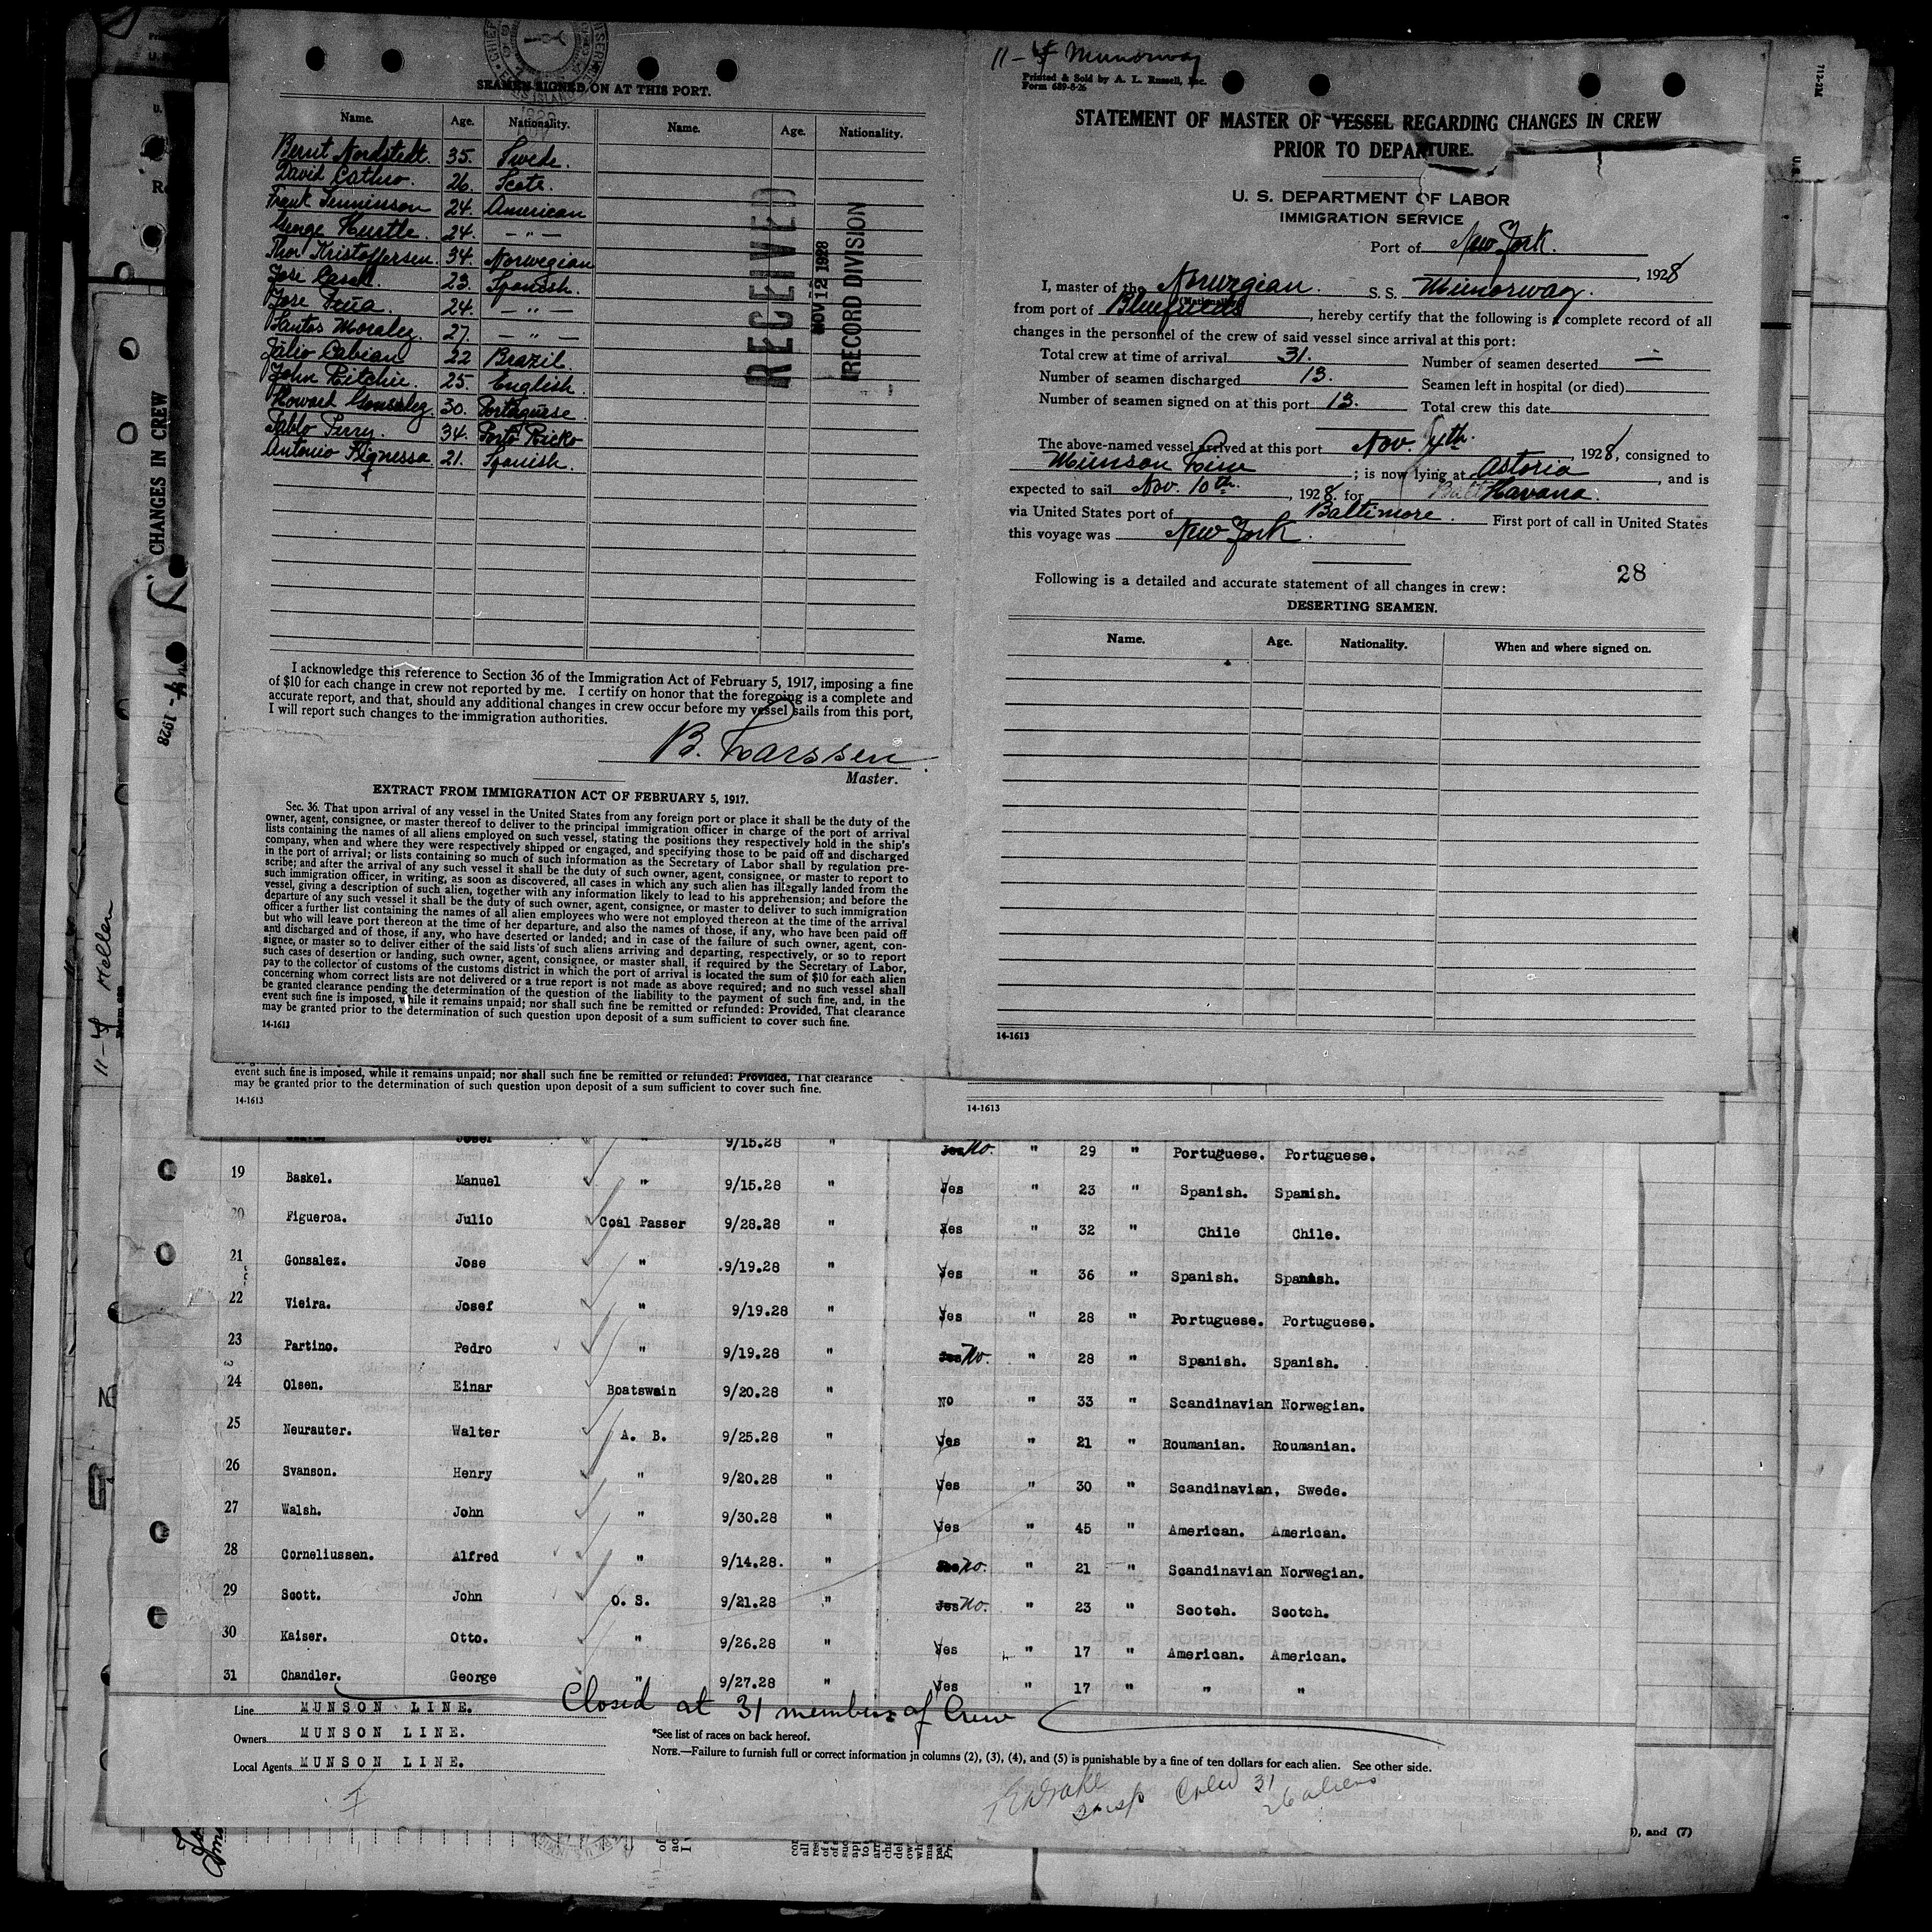 SEAMEN SIGNED ON AT THIS PORT.
Name. Age. Nationality. Name. Age. Nationality.
Bernt Nordstedt. 35. Swede.
David Cathro. 26. Scotc.
Frank Tenninson 24. American
George Hustle. 24. — " —
Thor Kristoffersen. 34. Norwegian
Jose 23. Spanish.
Jose 24. — " —
Santos Moralez. 27. — " —
Julio Cabian 22 Brazil.
John Ritchie. 25. English.
Howard Gonsalez. 30. Portuguese.
Pablo Perry. 34. Porto Ricko
Antonio 21. Spanish.
RECEIVED
NOV 12 1928
RECORD DIVISION
I acknowledge this reference to Section 36 of the Immigration Act of February 5, 1917, imposing a fine
of $10 for each change in crew not reported by me. I certify on honor that the foregoing is a complete and
accurate report, and that, should any additional changes in crew occur before my vessel sails from this port,
I will report such changes to the immigration authorities.
B. Larssen
Master.
EXTRACT FROM IMMIGRATION ACT OF FEBRUARY 5, 1917.
Sec. 36. That upon arrival of any vessel in the United States from any foreign port or place it shall be the duty of the
owner, agent, consignee, or master thereof to deliver to the principal immigration officer in charge of the port of arrival
lists containing the names of all aliens employed on such vessel, stating the positions they respectively hold in the ship's
company, when and where they were respectively shipped or engaged, and specifying those to be paid off and discharged
in the port of arrival; or lists containing so much of such information as the Secretary of Labor shall by regulation pre-
scribe; and after the arrival of any such vessel it shall be the duty of such owner, agent, consignee, or master to report to
such immigration officer, in writing, as soon as discovered, all cases in which any such alien has illegally landed from the
vessel, giving a description of such alien, together with any information likely to lead to his apprehension; and before the
departure of any such vessel it shall be the duty of such owner, agent, consignee, or master to deliver to such immigration
officer a further list containing the names of all alien employees who were not employed thereon at the time of the arrival
but who will leave port thereon at the time of her departure, and also the names of those, if any, who have been paid off
and discharged and of those, if any, who have deserted or landed; and in case of the failure of such owner, agent, con-
signee, or master so to deliver either of the said lists of such aliens arriving and departing, respectively, or so to report
such cases of desertion or landing, such owner, agent, consignee, or master shall, if required by the Secretary of Labor,
pay to the collector of customs of the customs district in which the port of arrival is located the sum of $10 for each alien
concerning whom correct lists are not delivered or a true report is not made as above required; and no such vessel shall
be granted clearance pending the determination of the question of the liability to the payment of such fine, and, in the
event such fine is imposed, while it remains unpaid; nor shall such fine be remitted or refunded: Provided, That clearance
may be granted prior to the determination of such question upon deposit of a sum sufficient to cover such fine.
14-1613
11-4 Munorway
Printed & Sold by A. L. Russell, Inc.
Form 689-8-26
STATEMENT OF MASTER OF VESSEL REGARDING CHANGES IN CREW
PRIOR TO DEPARTURE.
U. S. DEPARTMENT OF LABOR
IMMIGRATION SERVICE
Port of New York.
, 1928
I, master of the Norwegian. S. S. Munorway.
(Nationality)
from port of Bluefields, hereby certify that the following is a complete record of all
changes in the personnel of the crew of said vessel since arrival at this port:
Total crew at time of arrival 31. Number of seamen deserted —
Number of seamen discharged 13. Seamen left in hospital (or died)
Number of seamen signed on at this port 13. Total crew this date
The above-named vessel arrived at this port Nov. 4th., 1928, consigned to
Munson Line; is now lying at Astoria, and is
expected to sail Nov. 10th., 1928. for Balt Havana.
via United States port of Baltimore. First port of call in United States
this voyage was New York.
28
Following is a detailed and accurate statement of all changes in crew:
DESERTING SEAMEN.
Name. Age. Nationality. When and where signed on.
14-1613
CHANGES IN CREW
4-1928
11-4 Hellen
event such fine is imposed, while it remains unpaid; nor shall such fine be remitted or refunded: Provided, That clearance
may be granted prior to the determination of such question upon deposit of a sum sufficient to cover such fine.
14-1613
14-1613
Josef " 9/15.28 " Yes No. " 29 " Portuguese. Portuguese.
19 Baskel. Manuel " 9/15.28 " Yes " 23 " Spanish. Spanish.
20 Figueroa. Julio Coal Passer 9/28.28 " Yes " 32 " Chile Chile.
21 Gonsalez. Jose " .9/19.28 " Yes " 36 " Spanish. Spanish.
22 Vieira. Josef " 9/19.28 " Yes " 28 " Portuguese. Portuguese.
23 Partino. Pedro " 9/19.28 " Yes No. " 28 " Spanish. Spanish.
24 Olsen. Einar Boatswain 9/20.28 " No " 33 " Scandinavian Norwegian.
25 Neurauter. Walter A. B. 9/25.28 " Yes " 21 " Roumanian. Roumanian.
26 Svanson. Henry " 9/20.28 " Yes " 30 " Scandinavian, Swede.
27 Walsh. John " 9/30.28 " Yes " 45 " American. American.
28 Corneliussen. Alfred " 9/14.28. " No. " 21 " Scandinavian Norwegian.
29 Scott. John O. S. 9/21.28 " Yes No. " 23 " Scotch. Scotch.
30 Kaiser. Otto. " 9/26.28 " Yes " 17 " American. American.
31 Chandler. George " 9/27.28 " Yes " 17 " " "
Closed at 31 members of Crew
Line MUNSON LINE.
Owners MUNSON LINE.
Local Agents MUNSON LINE.
*See list of races on back hereof.
NOTE.—Failure to furnish full or correct information in columns (2), (3), (4), and (5) is punishable by a fine of ten dollars for each alien. See other side.
Insp Crew 31
26 aliens
), and (7)